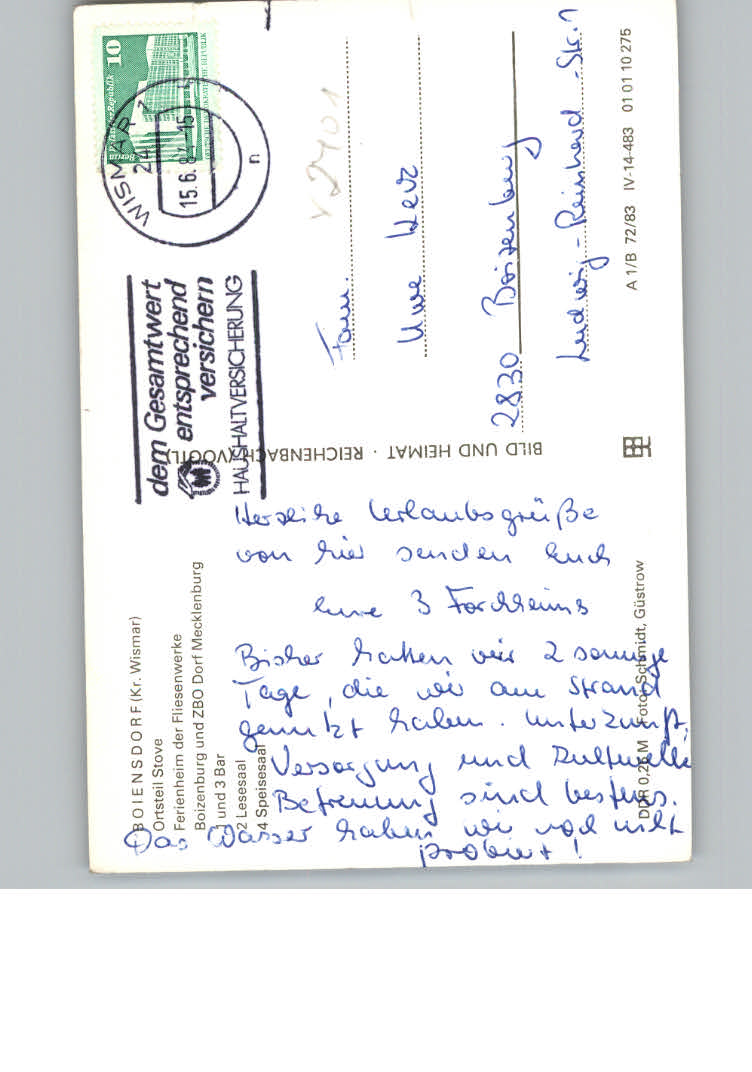 BOIENSDORF (Kr. Wismar)
Ortsteil Stove
Ferienheim der Fliesenwerke
Boizenburg und ZBO Dorf Mecklenburg
1 und 3 Bar
2 Lesesaal
4 Speisesaal
Herzliche Urlaubsgrüße
von hier senden Euch
Eure 3 Forchheims
Bisher hatten wir 2 sonnige
Tage, die wir am Strand
genutzt haben. Unterkunft,
Versorgung und kulturelle
Betreuung sind bestens.
Das Wasser haben wir noch nicht
probiert!
DDR 0,25 M Foto: Schmidt, Güstrow
BILD UND HEIMAT · REICHENBACH (VOGTL)
dem Gesamtwert
entsprechend
versichern
HAUSHALTVERSICHERUNG
WISMAR 1
24
15.6.84-15
n
10
Berlin
DEUTSCHE DEMOKRATISCHE REPUBLIK
V2401
Fam.
Uwe Herz
2830 Boizenburg
Ludwig-Reinhard-Str. 1
A 1/B 72/83 IV-14-483 01 01 10 275